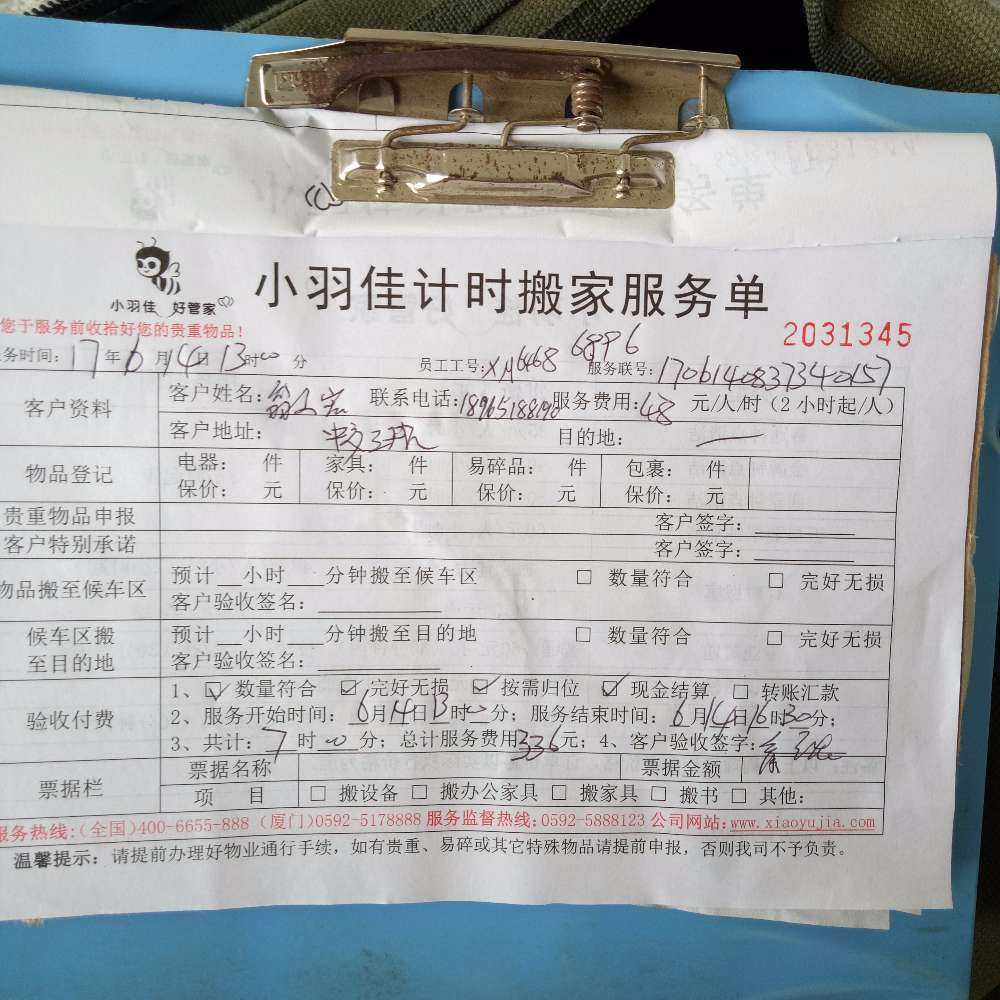 小羽佳 好管家
小羽佳计时搬家服务单
您于服务前收拾好您的贵重物品！
2031345
务时间：17年6月14日13时00分 员工工号：XM6468 6896 服务联号：1706140837340157
客户资料 客户姓名： 联系电话：18965188190 服务费用：48 元/人/时（2小时起/人）
客户地址： 目的地：
物品登记 电器： 件 家具： 件 易碎品： 件 包裹： 件
保价： 元 保价： 元 保价： 元 保价： 元
贵重物品申报 客户签字：
客户特别承诺 客户签字：
物品搬至候车区 预计__小时__分钟搬至候车区 □ 数量符合 □ 完好无损
客户验收签名：
候车区搬至目的地 预计__小时__分钟搬至目的地 □ 数量符合 □ 完好无损
客户验收签名：
验收付费 1、☑ 数量符合 ☑ 完好无损 ☑ 按需归位 ☑ 现金结算 □ 转账汇款
2、服务开始时间：6月14日13时00分；服务结束时间：6月14日16时30分；
3、共计：7时00分；总计服务费用336元；4、客户验收签字：
票据栏 票据名称 票据金额
项 目 □ 搬设备 □ 搬办公家具 □ 搬家具 □ 搬书 □ 其他：
服务热线：(全国)400-6655-888 (厦门)0592-5178888 服务监督热线：0592-5888123 公司网站：www.xiaoyujia.com
温馨提示：请提前办理好物业通行手续，如有贵重、易碎或其它特殊物品请提前申报，否则我司不予负责。